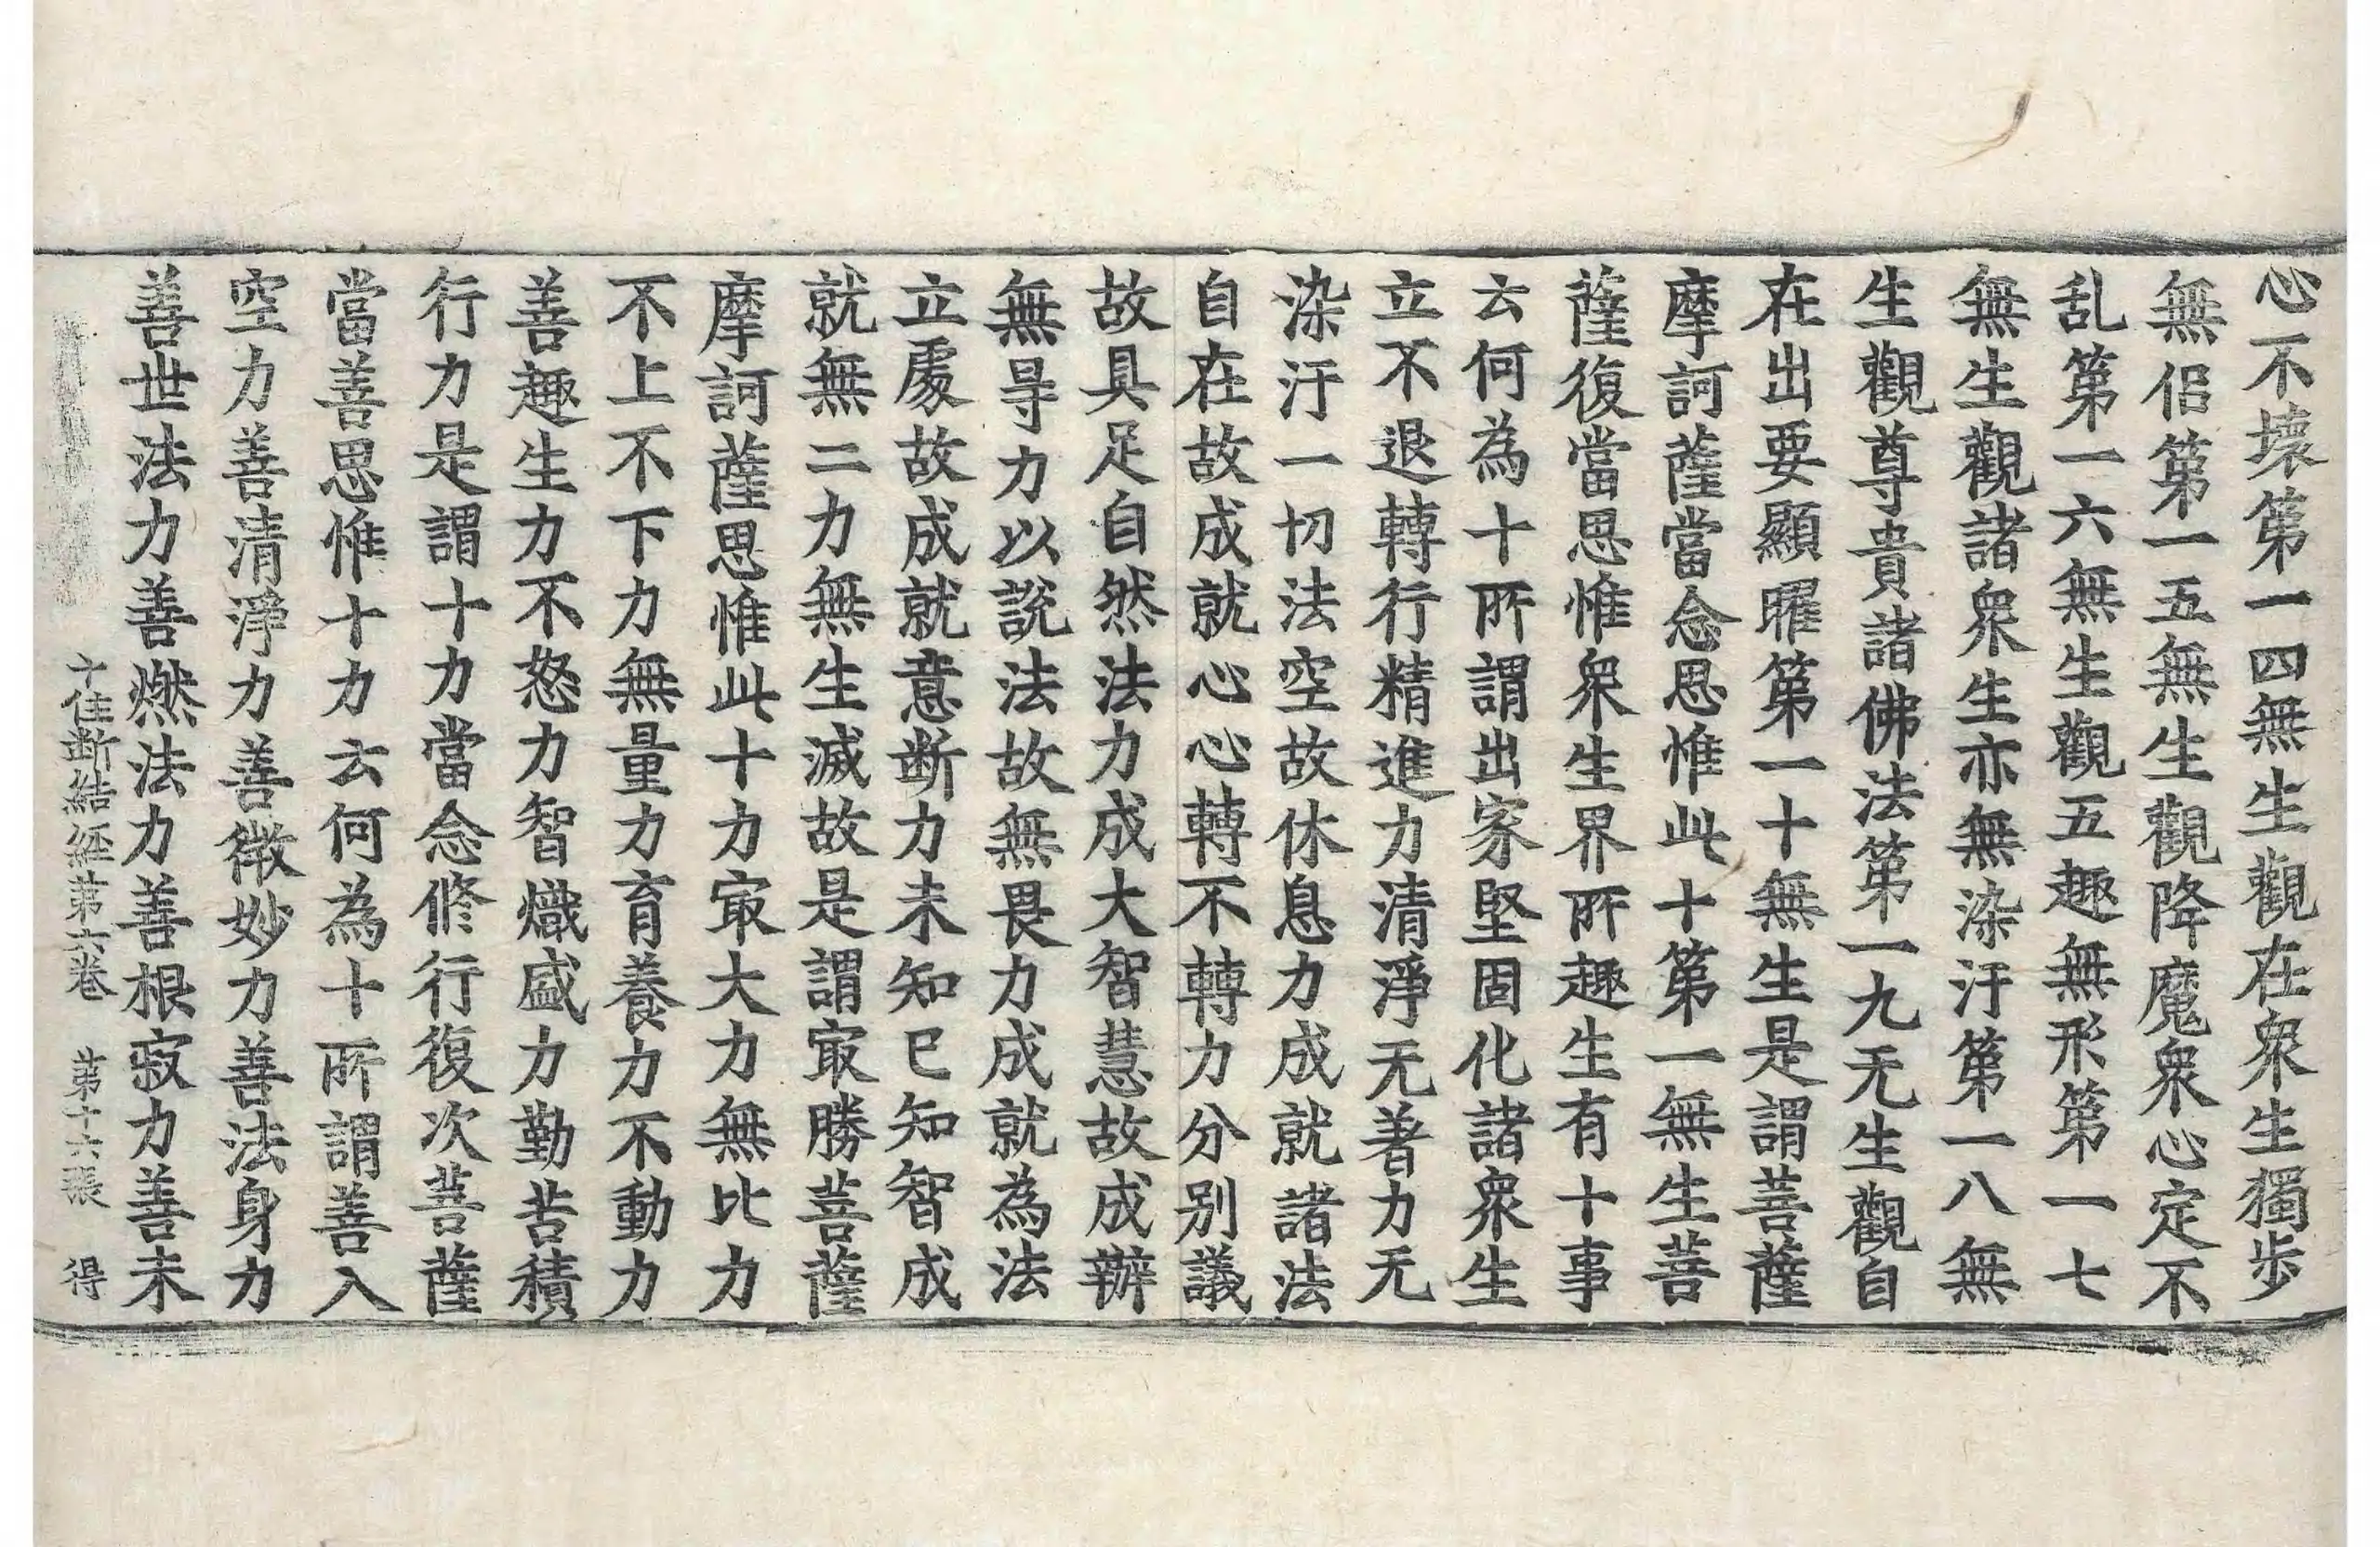 心不壞第一四無生觀在衆生獨歩
無侶第一五無生觀降魔衆心定不
乱第一六無生觀五趣無形第一七
無生觀諸衆生亦無染汙第一八無
生觀尊貴諸佛法第一九无生觀自
在出要顯曜第一十無生是謂菩薩
摩訶薩當念思惟此十第一無生菩
薩復當思惟衆生界所趣生有十事
云何為十所謂出家堅固化諸衆生
立不退轉行精進力清淨无著力无
染汙一切法空故休息力成就諸法
自在故成就心心轉不轉力分別議
故具足自然法力成大智慧故成辦
無㝵力以說法故無畏力成就為法
立處故成就意断力未知已知智成
就無二力無生滅故是謂㝡勝菩薩
摩訶薩思惟此十力㝡大力無比力
不上不下力無量力育養力不動力
善趣生力不怒力智熾盛力勤苦積
行力是謂十力當念修行復次菩薩
當善思惟十力云何為十所謂善入
空力善清淨力善微妙力善法身力
善世法力善燃法力善根寂力善未
十住断結經第六卷 第十六張 得